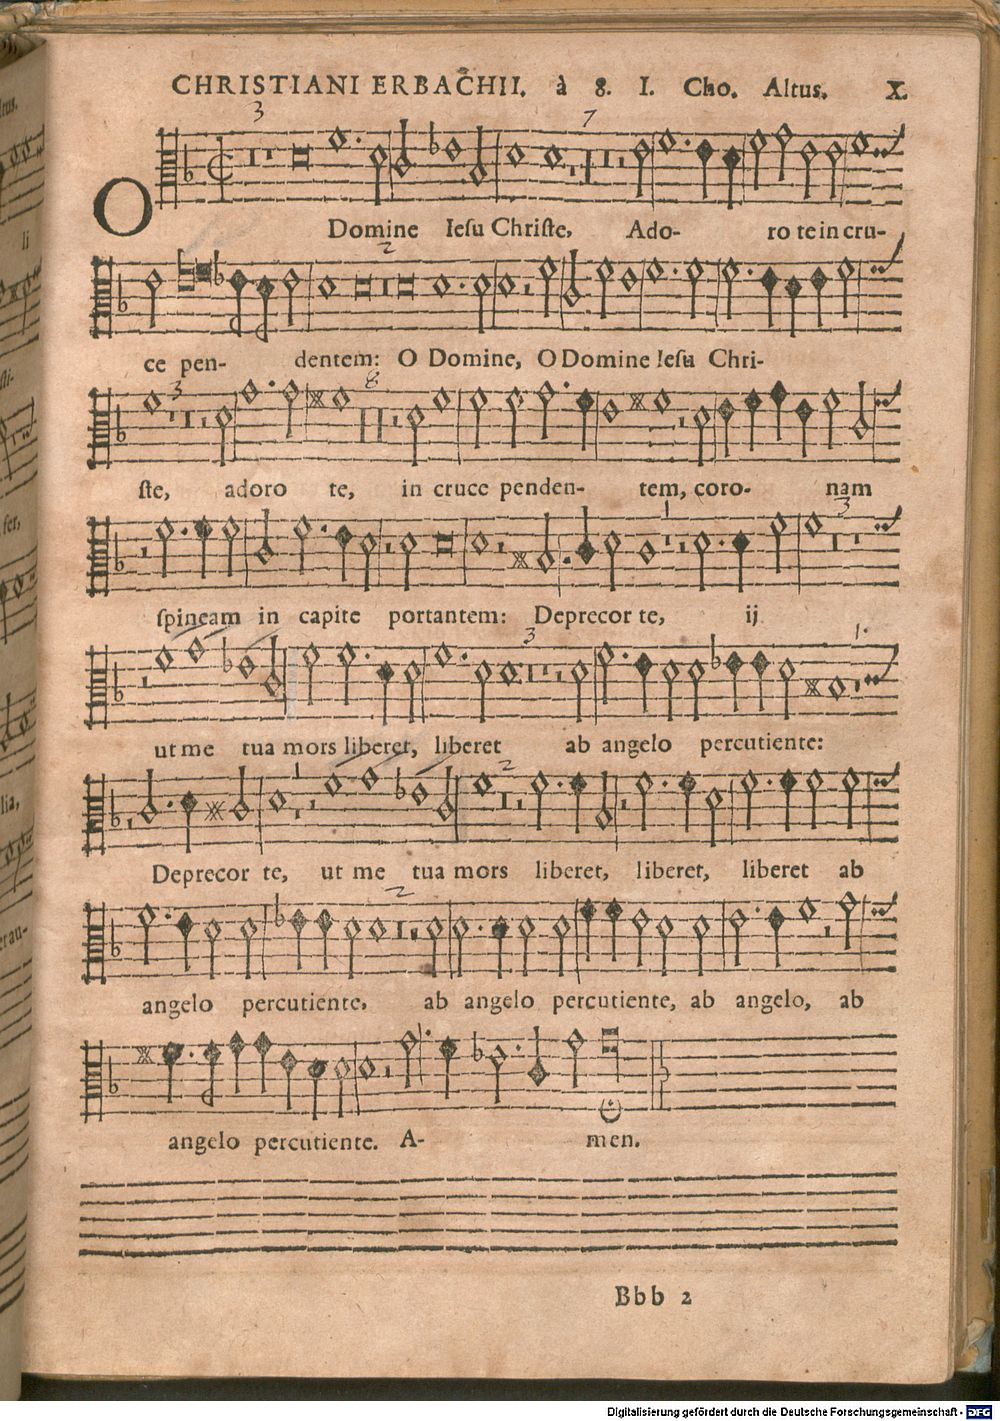 CHRISTIANI ERBACHII. à 8. I. Cho. Altus. X.
3 7
O Domine Iesu Christe, Ado- ro te in cru-
2
ce pen- dentem: O Domine, O Domine Iesu Chri-
3 8
ste, adoro te, in cruce penden- tem, coro- nam
3
spineam in capite portantem: Deprecor te, ij
3
ut me tua mors liberet, liberet ab angelo percutiente:
2
Deprecor te, ut me tua mors liberet, liberet, liberet ab
2
angelo percutiente, ab angelo percutiente, ab angelo, ab
angelo percutiente. A- men.
Bbb 2
Digitalisierung gefördert durch die Deutsche Forschungsgemeinschaft - DFG